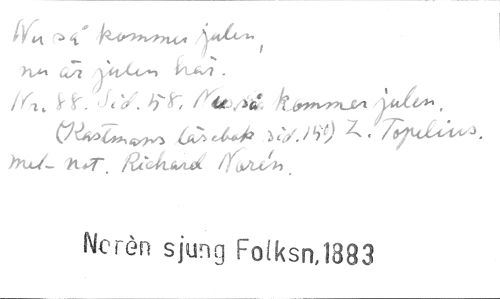 Nu så kommer julen,
nu är julen här.
Nr. 88. Sid. 58. Nu så kommer julen.
(Kastmans läsebok sid. 150) Z. Topelius.
mel- not. Richard Norén.
Norèn sjung Folksn,1883